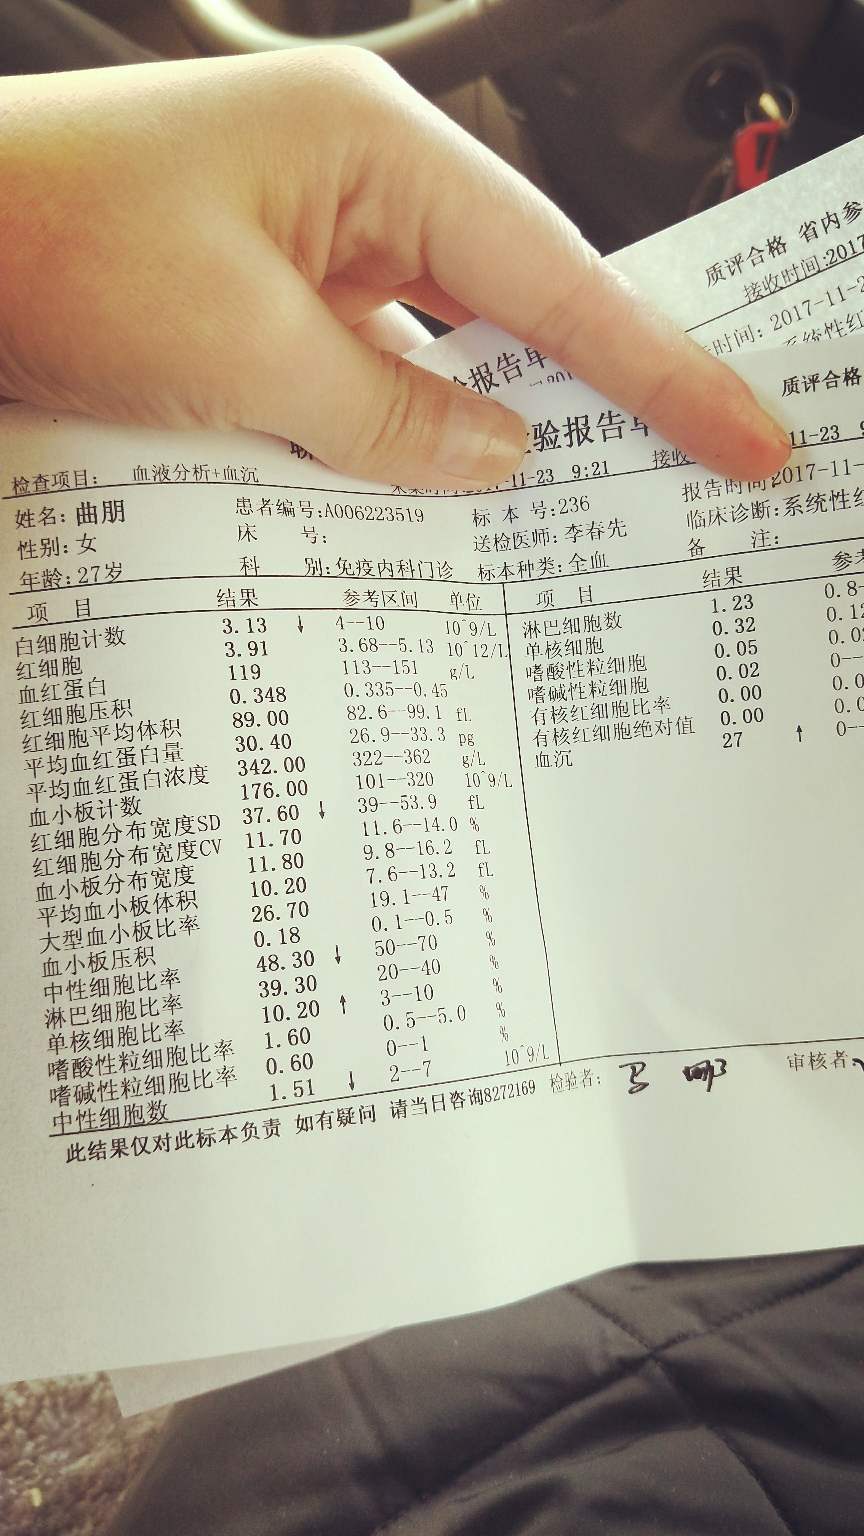 质评合格 省内参
接收时间:2017
时间: 2017-11-2
系统性红
报告单
质评合格
验报告单
11-23 9:21 接收 11-23 9
检查项目: 血液分析+血沉
报告时间:2017-11-
姓名: 曲朋 患者编号:A006223519 标 本 号:236 临床诊断:系统性红
性别: 女 床 号: 送检医师: 李春先 备 注:
年龄: 27岁 科 别: 免疫内科门诊 标本种类: 全血
项 目 结果 参考区间 单位 项 目 结果 参考
白细胞计数 3.13 ↓ 4--10 10^9/L 淋巴细胞数 1.23 0.8-
红细胞 3.91 3.68--5.13 10^12/L 单核细胞 0.32 0.12
血红蛋白 119 113--151 g/L 嗜酸性粒细胞 0.05 0.02
红细胞压积 0.348 0.335--0.45 嗜碱性粒细胞 0.02 0--
红细胞平均体积 89.00 82.6--99.1 fL 有核红细胞比率 0.00 0.0
平均血红蛋白量 30.40 26.9--33.3 pg 有核红细胞绝对值 0.00 0.0
平均血红蛋白浓度 342.00 322--362 g/L 血沉 27 ↑ 0--
血小板计数 176.00 101--320 10^9/L
红细胞分布宽度SD 37.60 ↓ 39--53.9 fL
红细胞分布宽度CV 11.70 11.6--14.0 %
血小板分布宽度 11.80 9.8--16.2 fL
平均血小板体积 10.20 7.6--13.2 fL
大型血小板比率 26.70 19.1--47 %
血小板压积 0.18 0.1--0.5 %
中性细胞比率 48.30 ↓ 50--70 %
淋巴细胞比率 39.30 20--40 %
单核细胞比率 10.20 ↑ 3--10 %
嗜酸性粒细胞比率 1.60 0.5--5.0 %
嗜碱性粒细胞比率 0.60 0--1 %
中性细胞数 1.51 ↓ 2--7 10^9/L
此结果仅对此标本负责 如有疑问 请当日咨询8272169 检验者: 审核者: